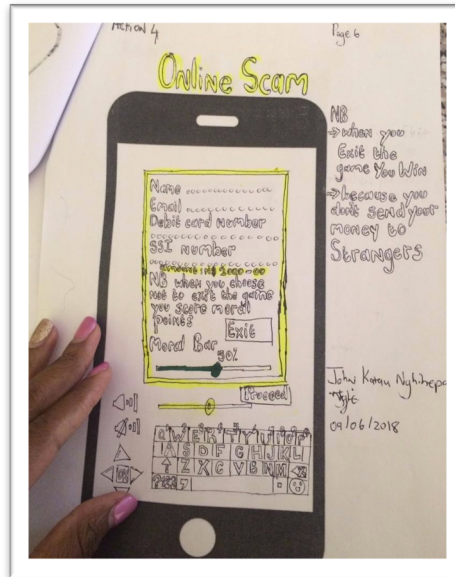 Action 4
Page 6
Online Scam
Name
Email
Debit card number
SSI number
amount in $ 2000-00
NB when you choose
not to exit the game
you score moral
points
Exit
Moral Bar
50%
Proceed
A S D F G H J K L
Z X C V B N M
NB
→ when you
Exit the
game You Win
→ because you
dont send your
money to
Strangers
John
09/06/2018